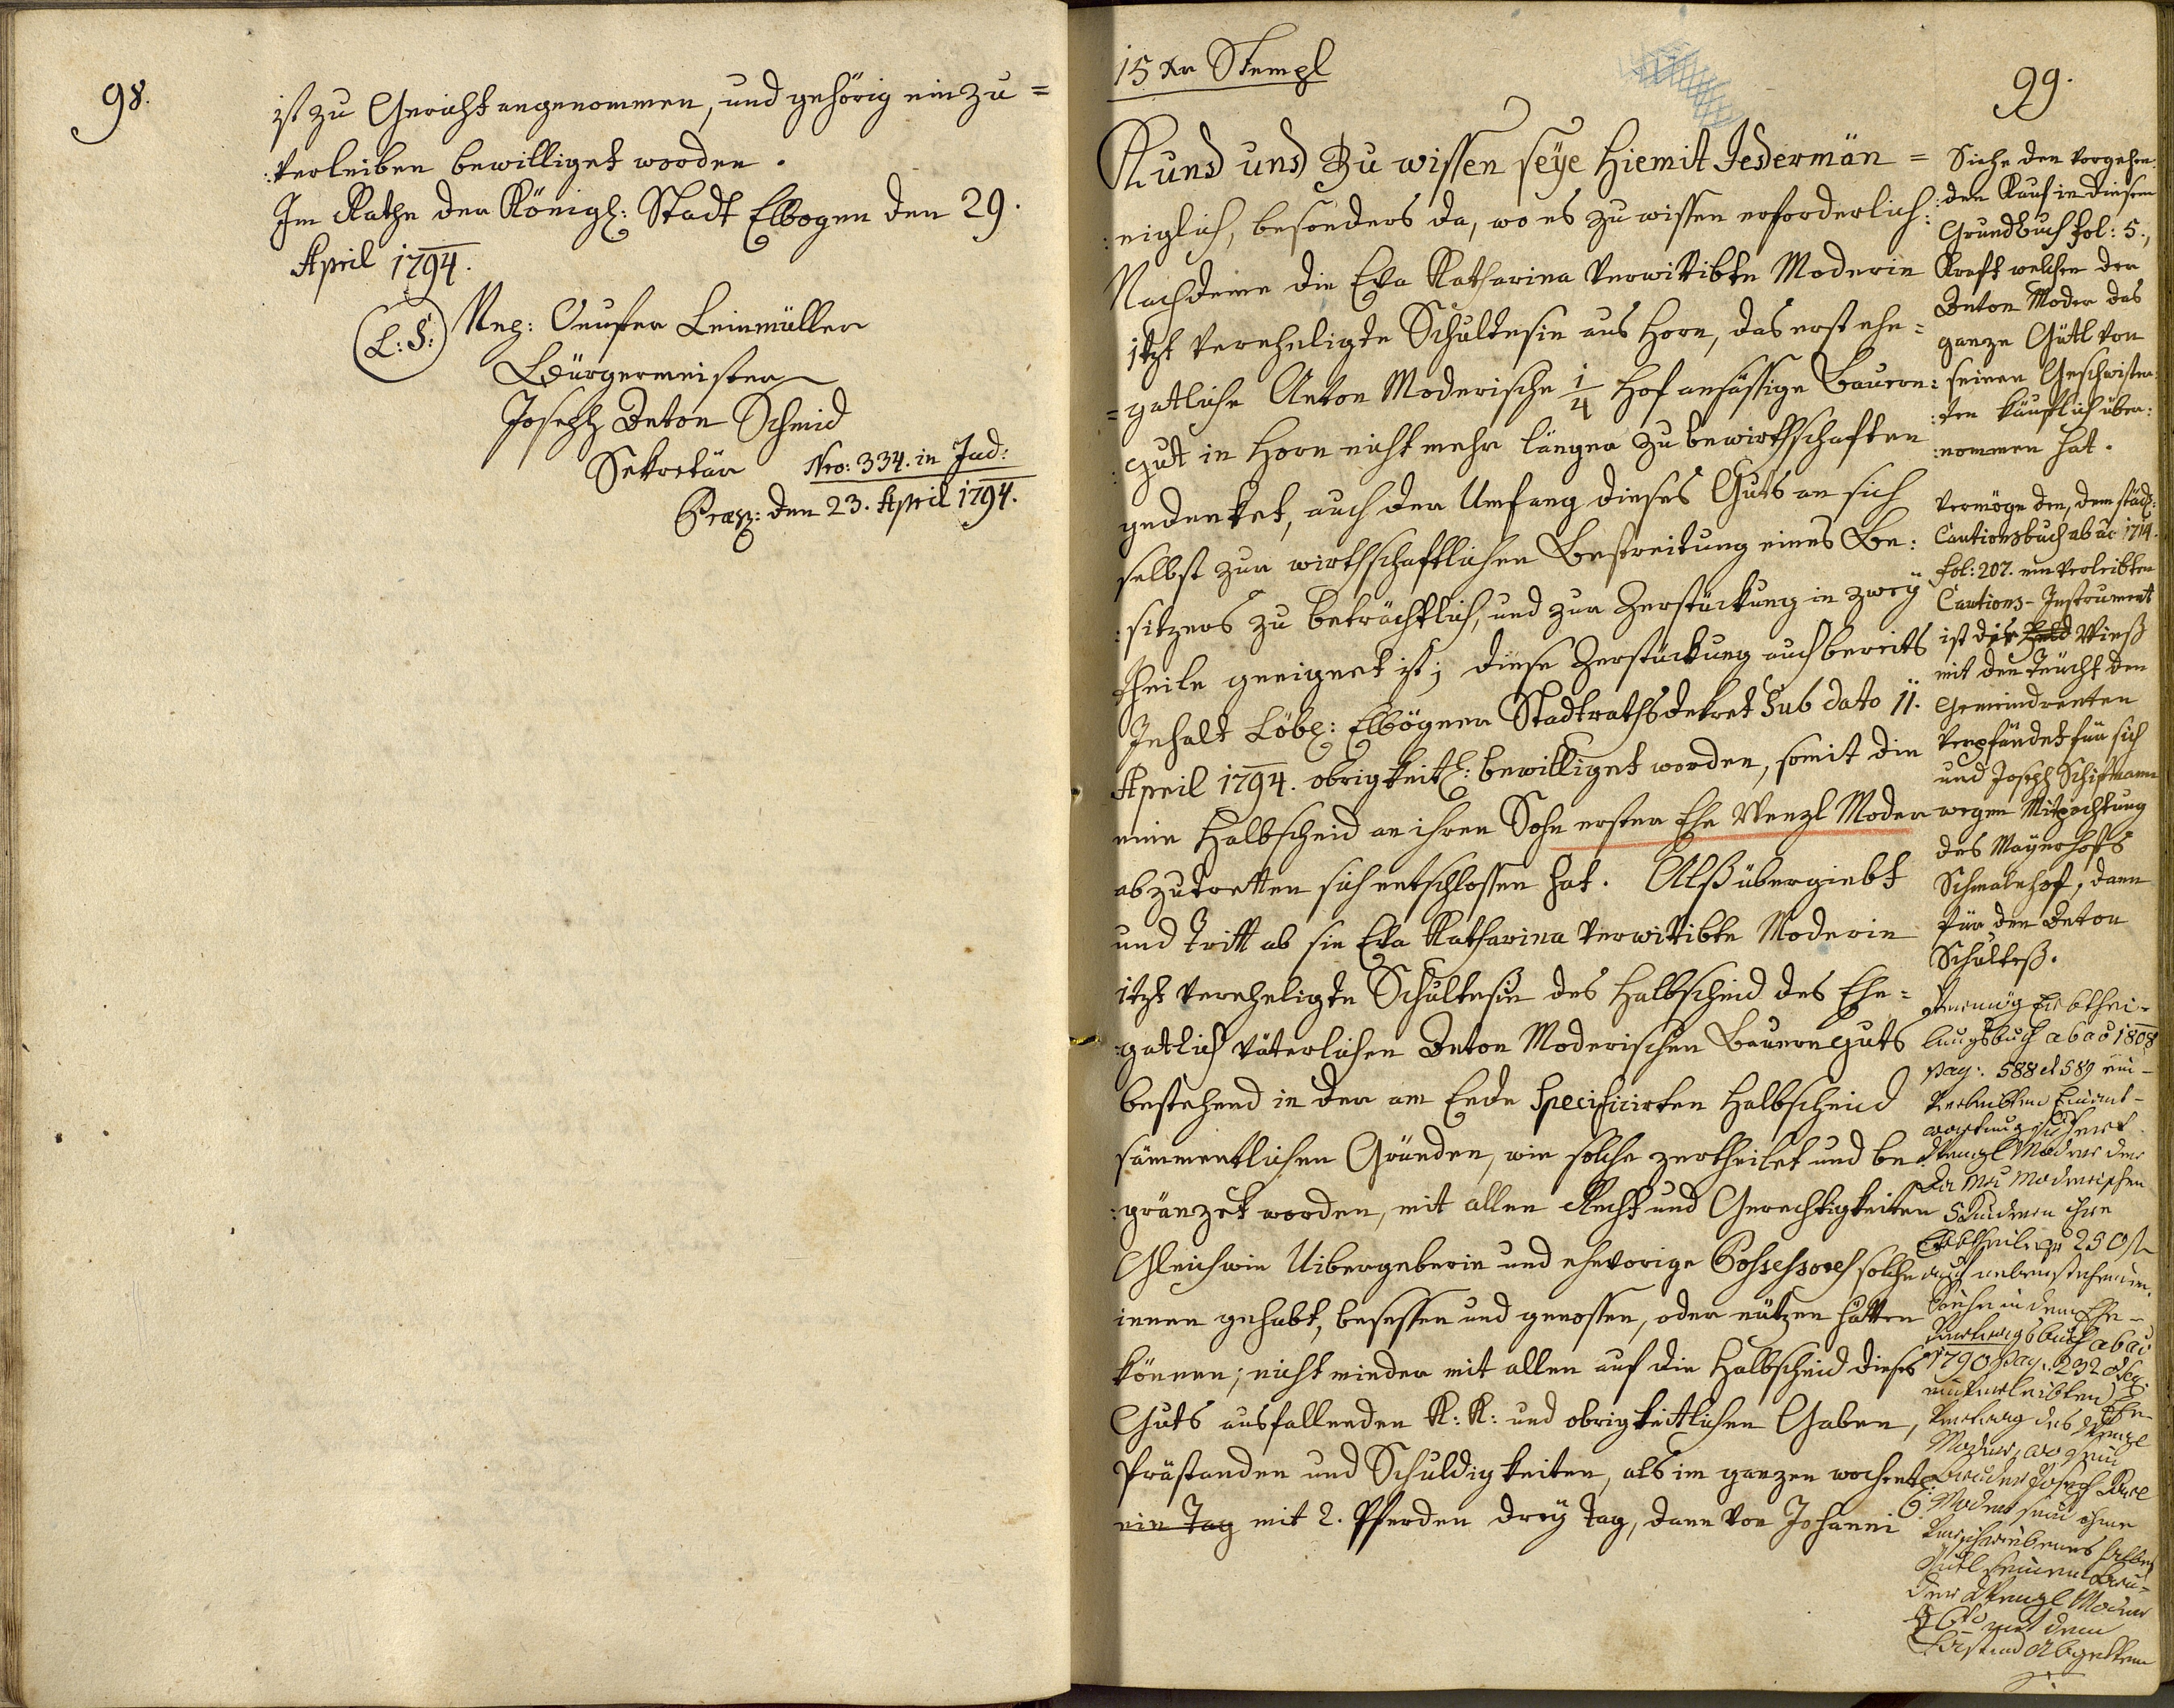 98.
ist zu Gericht angenommen, und gehörig ein zu=
:verleiben bewilliget worden.
Im Rathe der Königl: Stadt Elbogen den 29.
April 1794.
(L:S:)
Leinmüller
Bürgermeister
Joseph Anton Schmid
Sekretär
Nro: 334. in Jud:
Praes: den 23. April 1794.
15 Xr Stempl
99.
Kund und Zu wissen seye hiemit Jedermän=
:niglich, besonders da, wo es zu wissen erforderlich:
Nachdeme die Eva Katharina verwittibte Moderin
itzt verehligte Schultesin aus Horn, das erst ehe=
=gatliche Anton Moderische 1/4 Hof ansässige Bauern:
:gut in Horn nicht mehr länger zu bewirthschaften
gedenket, auch der Umfang dieses Guts an sich
selbst zur wirthschaftlichen Bestreitung eines Be:
:sitzers zu beträchtlich, und zur Zerstückung in zwey
Theile geeignet ist; diese Zerstückung auch bereits
Inhalt Löbl: Elbögner Stadtrathsdekret Sub dato 11.
April 1794. obrigkeitl: bewilliget worden, somit die
eine Halbscheid an ihren Sohn erster Ehe Wenzl Moder
abzutretten sich entschlossen hat. Alß übergiebt
und tritt ab sie Eva Katharina verwittibte Moderin
itzt verehligte Schultesin des Halbscheid des Ehe=
:gatlich väterlichen Anton Moderischen Bauernguts
bestehend in der am Ende Specificirten Halbscheid
sämmentlichen Gründen, wie solche zertheilet und be
:gränzet worden, mit allen Recht und Gerechtigkeiten
Gleichwie Uibergeberin und ehevorige Possessores solche
innen gehabt, besessen und genossen, oder nützen hätten
können; nicht minder mit allen auf die Halbscheid dieses
Guts ausfallenden K: K: und obrigkeitlichen Gaben,
Prästanden und Schuldigkeiten, als im ganzen wochentl:
ein Tag mit 2. Pferden drey Tag, dann von Johanni
Siehe den vorgehen:
:den Kauf in diesem
Grundbuch fol: 5.,
Kraft welchen der
Anton Moder das
ganze Gütl von
seinen Geschwister:
:ten käuflich über:
:nommen hat.
Vermöge den, dem städ:
Cautionsbuch ab ao 1714.
fol: 207. einverleibten
Cautions-Instrument
ist die Feld Wieß
mit den Teucht den
Gemeindrenten
verpfändet für sich
und Joseph Schismann
wegen Mitpachtung
des Mayerhofs
Schmalnhof, dann
für den Anton
Schulteß.
Vermög Erbthei-
lungsbuch ab ao 1808
pag: 588 et 589 ein-
verleibten Einant-
wortung
Wenzl Moder der
Moderischen
5 Kindern ihre
Erbtheile zu 250 fl
nebenstehenden.
Siehe in dem Ehe-
vertragsbuch ab ao
1790 pag: 232 et seq:
einverleibten Ehe-
vertrag des Wenzl
Moder, wo sein
Bruder Joseph Karl
Moder sein ihme
verschriebenes halbes
Gütl seinem Bru-
der Wenzl Moder
mit dem